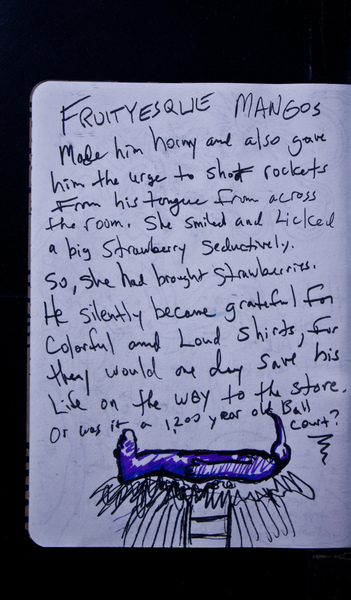 FRUITYESQUE MANGOS
Made him horny and also gave
him the urge to shot rockets
From his tongue from across
the room. She smiled and Licked
a big Strawberry Seductively.
So, she had brought Strawberries.
He silently became grateful For
Colorful and Loud Shirts, For
they would one day save his
Life on the way to the store.
Or was it a 1,200 year old Ball
Court?